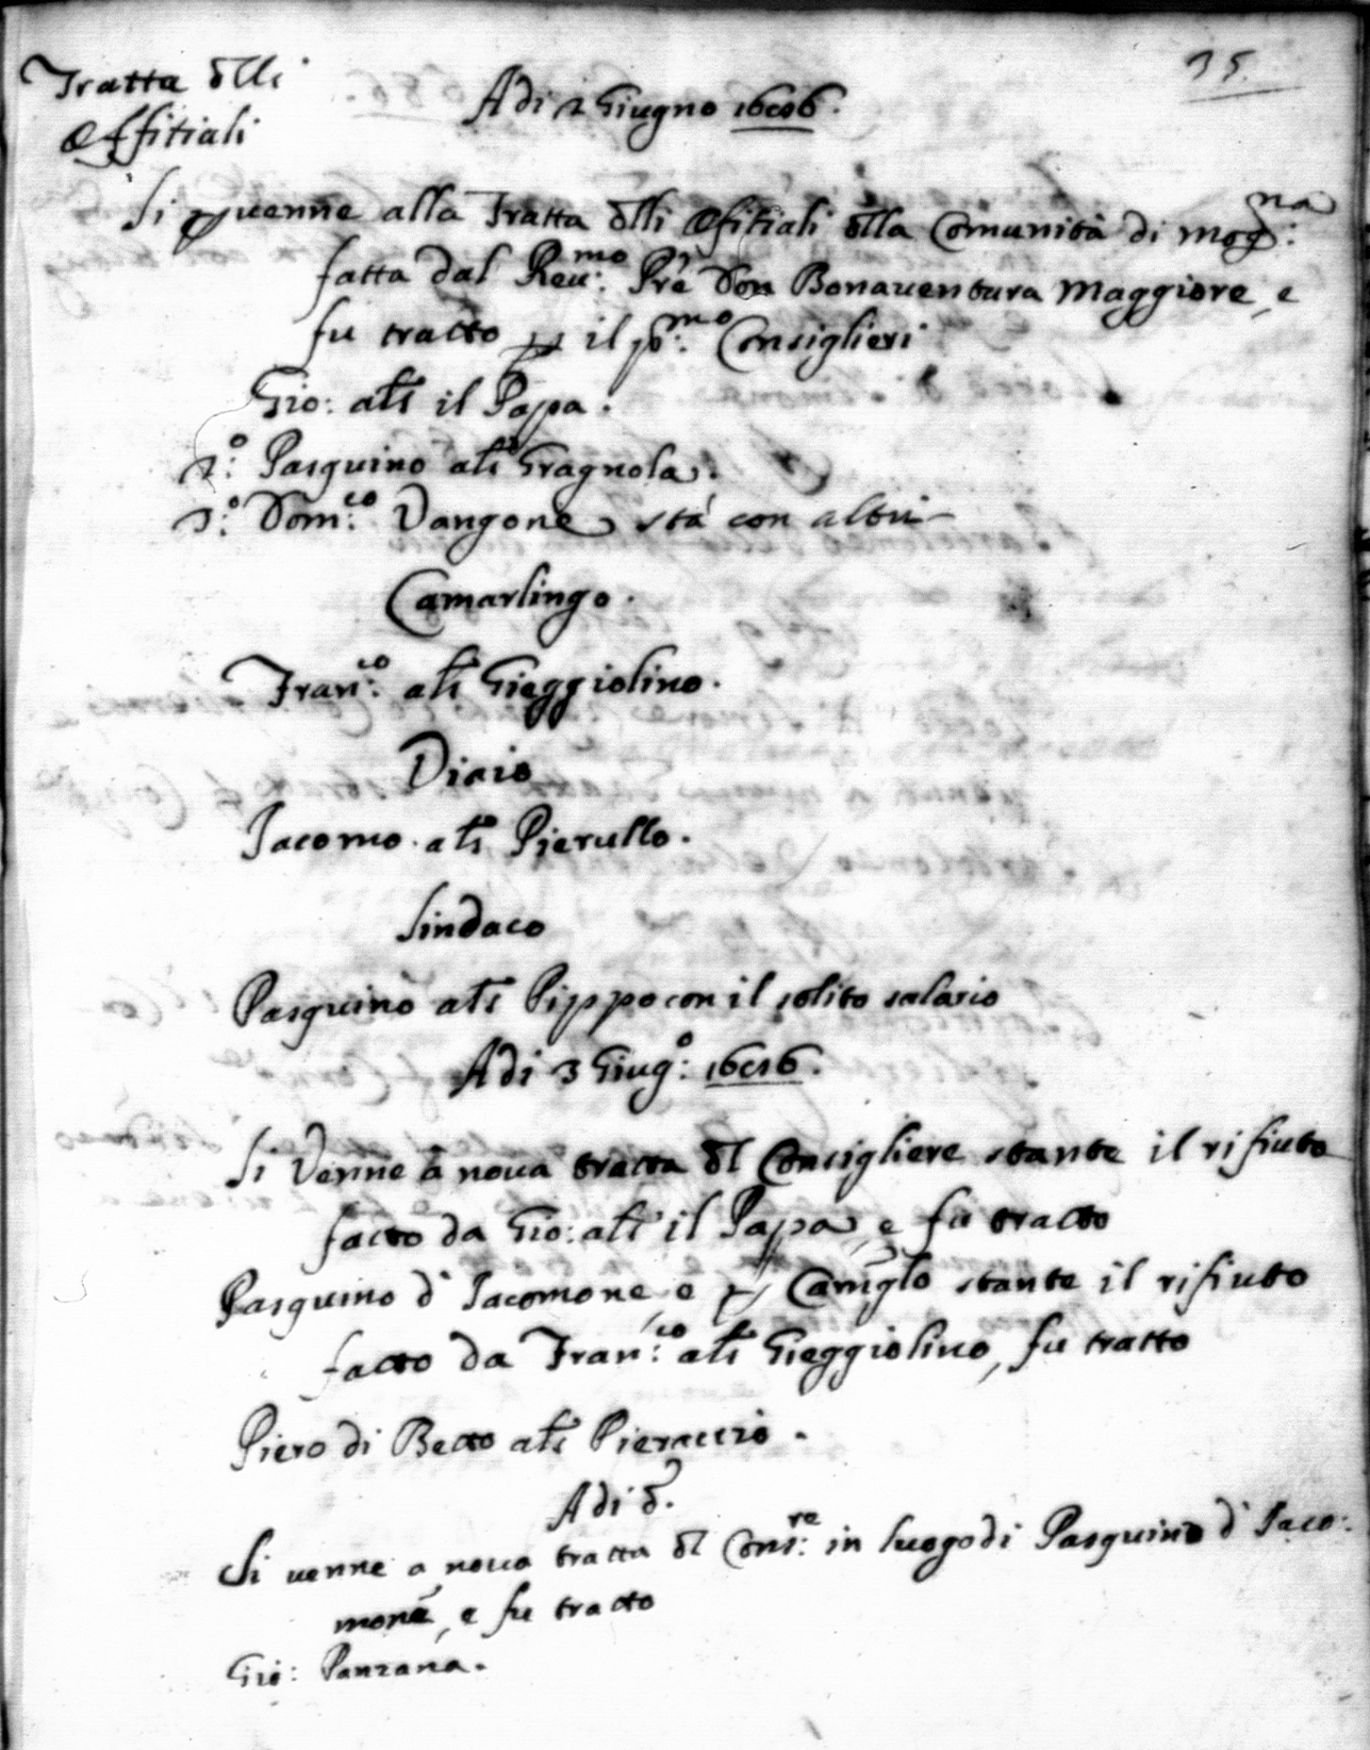 35
Tratta dlli
Offitiali
Adi 2 Giugno
Si puenne alla Tratta dlli Ofitiali dlla Comunità di mog:na
fatta dal Reu:mo Pre Don Bonauentura Maggiore, e
fu tratto p il p:mo Consiglieri
Gio: als il Papa.
2:o Pasquino als Gragnola.
3:o Dom:co Vangone stà con altri
Camarlingo.
Fran:co als Gieggiolino.
Diario
Jacomo als Pierullo.
Sindaco
Pasquino als Pippo con il solito salario
Adi 3 Giug:o
Si Venne à noua tratta dl Consigliere stante il rifiuto
fatto da Gio: als il Papa, e fu tratto
Pasquino d' Jacomone, e p Camglo stante il rifiuto
fatto da Fran:co als Gieggiolino, fu tratto
Piero di Betto als Pieraccio.
Adi d.
Si uenne a noua tratta dl Cons:re in luogo di Pasquino d' Jaco:
mone, e fu tratto
Gio: Panzana.